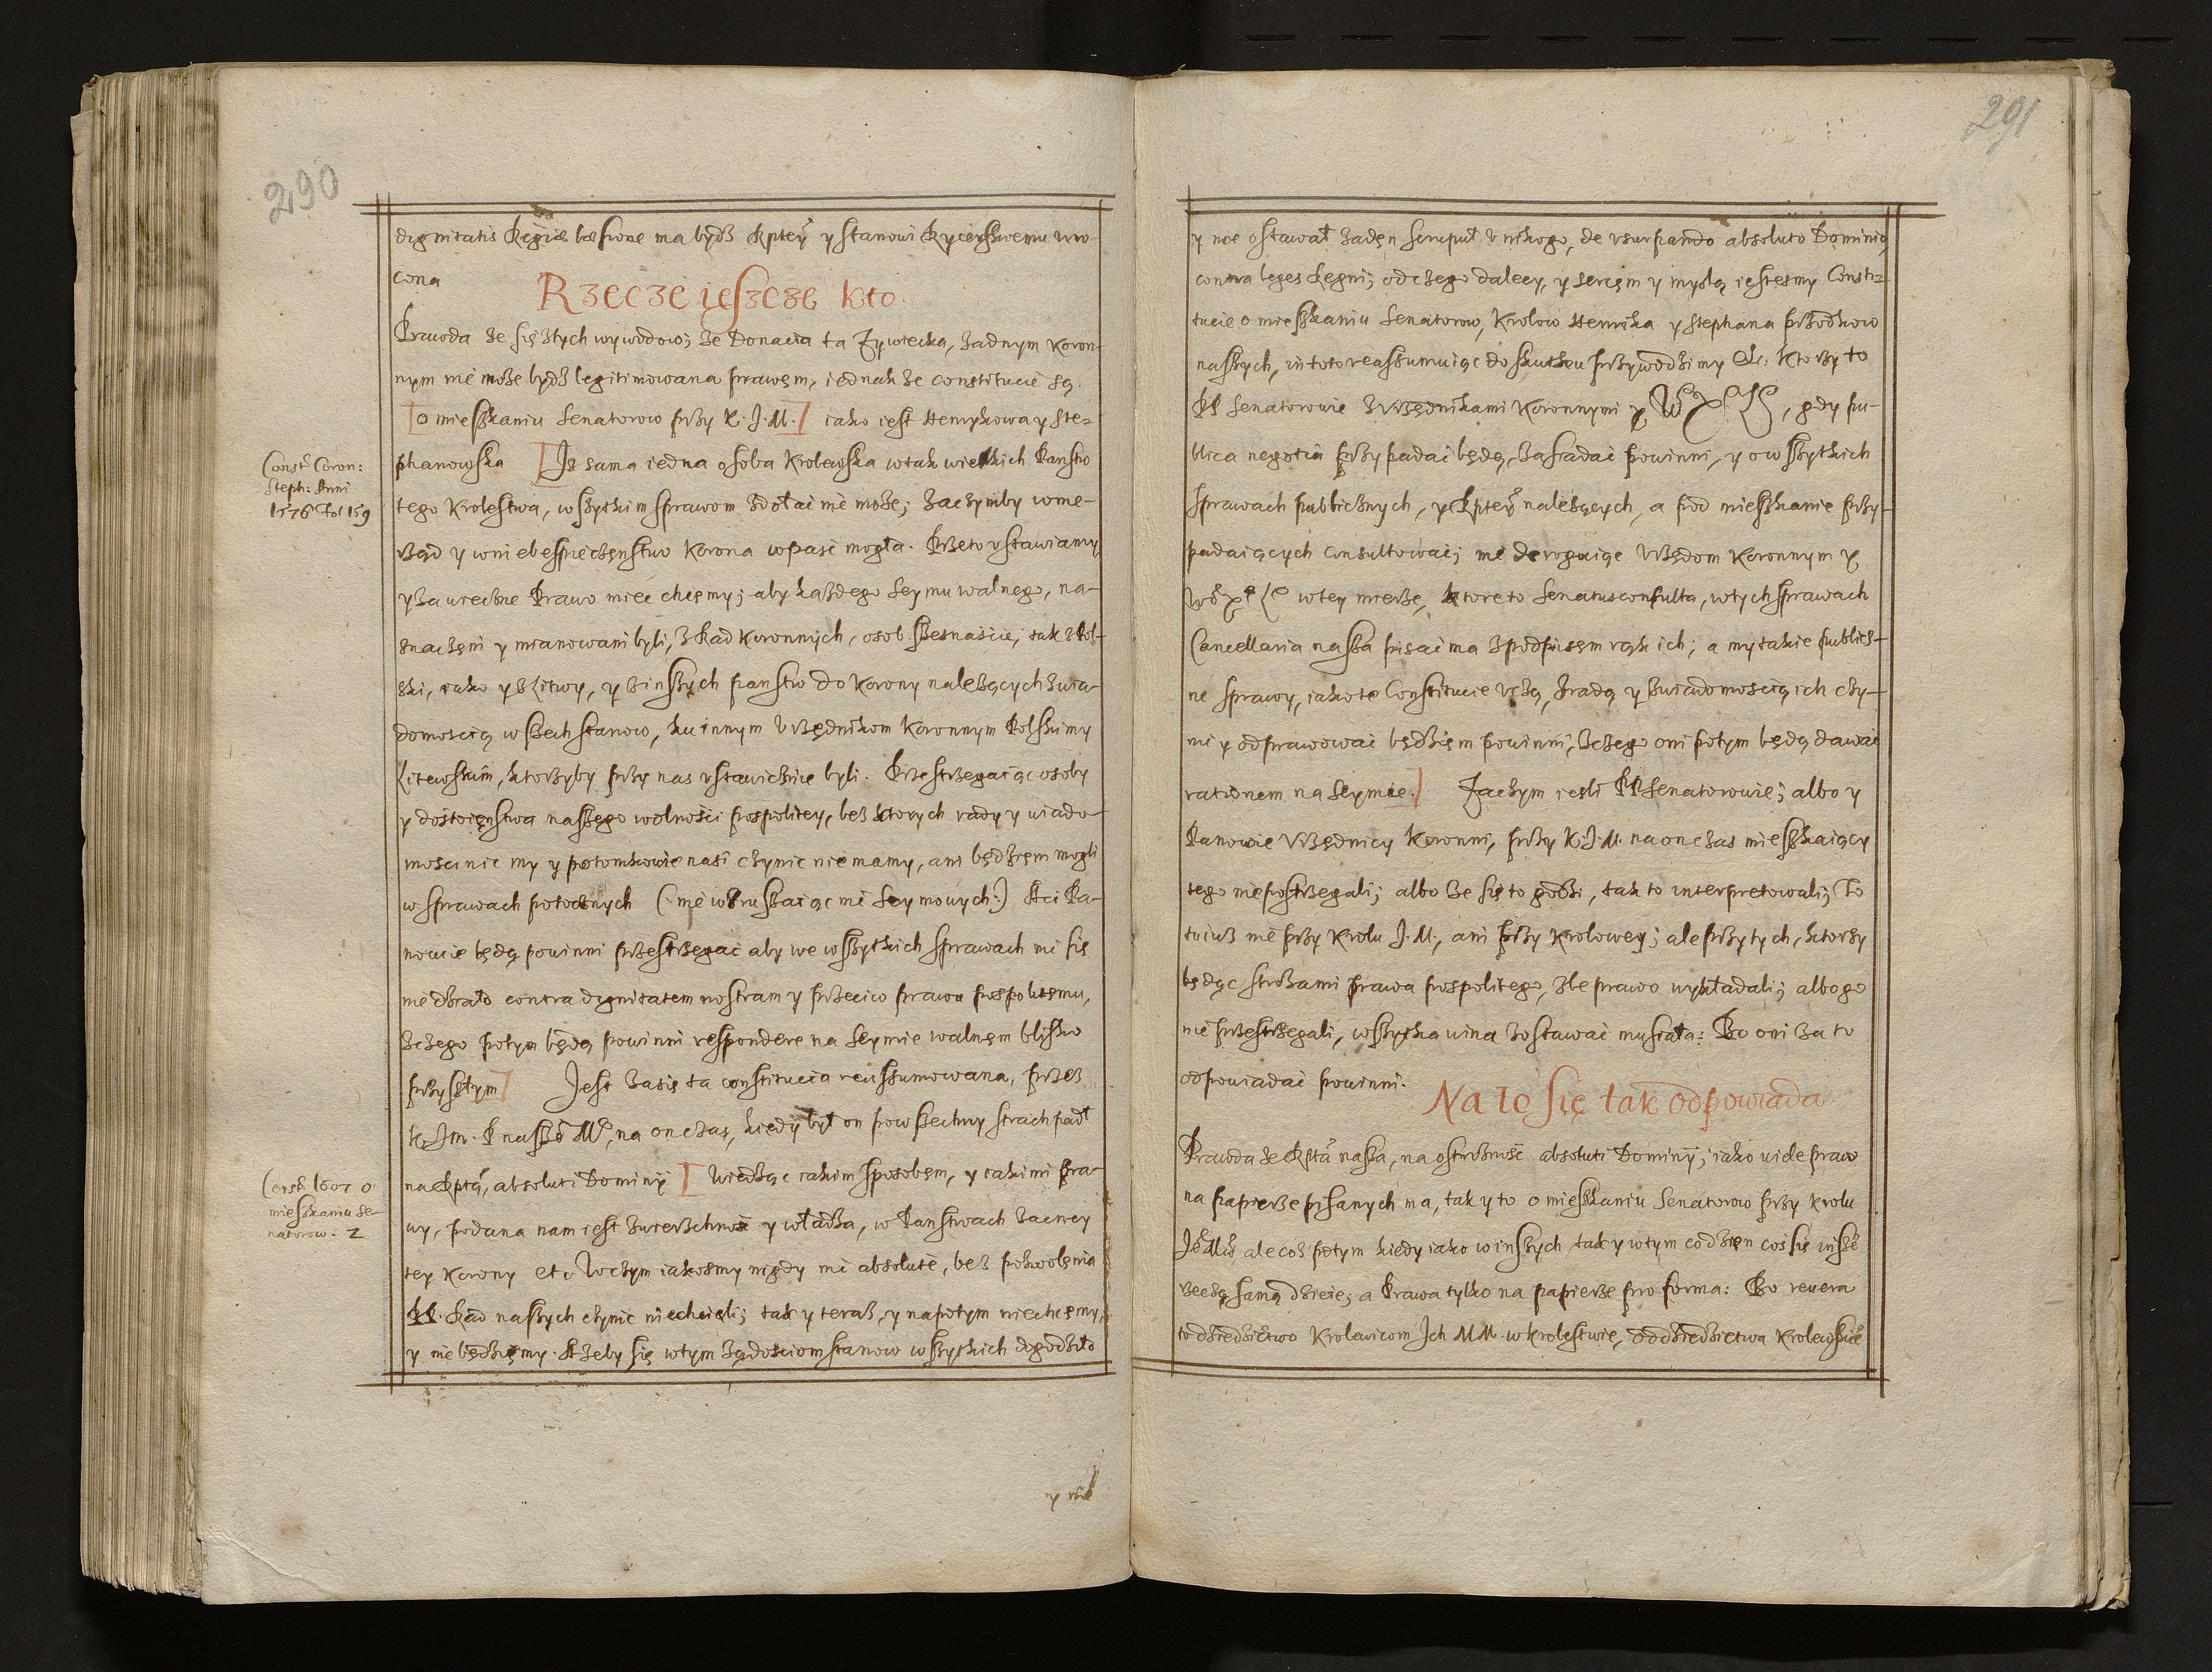 290
dignitatis Regiæ læsione ma bydź Rptey y stanowi Rycerskiemu wro-
cona
Rzecze ieszcze kto.
Prawda że się ztych wywodow; że Donacia ta Zywiecka, żadnym Koron-
nym nie może bydź legitimowana prawem, iednak że constitucie są.
[o mieszkaniu Senatorow przy K. J. M.] iako iest Henrykowa y Ste-
phanowska [Iż sama iedna osoba Krolewska w tak wielkich Państw
Const: Coron:
Steph: Anni
1576 Fol 159
tego Krolestwa, wszytkim sprawom zdołać nie może; zaczymby w nie-
rząd y w niebespieczenstwo Korona wpaść mogła. Przeto ustawiamy,
y za wieczne Prawo mieć chcemy; aby każdego Seymu walnego, na-
znaczeni y mianowani byli, z Rad Koronnych, osob szesnaście, tak z Pol-
ski, iako y z Litwy, y z inszych panstw do Korony należących z wia-
domoscią wszech stanow, ku innym Vrzędnikom Koronnym Polskim y
Litewskim, ktorzyby przy nas ustawicznie byli. Przestrzegaiąc osoby
y dostoięnstwa naszego wolności pospolitey, bez ktorych rady y wiado-
mości nic my y potomkowie nasi czynic nie mamy, ani będziem mogli
w sprawach potocznych (: nie wzruszaiąc nic Seymowych:) A ci Pa-
nowie będą powinni przestrzegać aby we wszytkich sprawach nic się
nie działo contra dignitatem nostram y przeciw prawu pospolitemu,
z czego potym będą powinni respondere na Seymie walnem blisko
przyszłym] Jest zasię ta constitucia reassumowana, przez
K. J. M. P. naszeo Mo, na on czas, kiedy był on powszechny strach padł
na Rptą, absoluti Dominij [Wiedząc iakim sposobem, y iakimi Pra-
Const. 1607 o
mieszkaniu Se-
natorow. 2
wy, podana nam iest zwierzchność y władza, w Panstwach zacney
tey Korony etc. W czym iakosmy nigdy nic absolute, bez pozwolenia
PP. Rad naszych czynic niechcieli; tak y teraz, y napotym niechcemy,
y nie będziemy. A żeby się wtym żądościom stanow wszytkich dogodziło
y nie
291
y nie ostawał żaden scrupuł u nikogo, de usurpando absoluto Dominio,
contra leges Regni; od czego daleey, y sercem y myslą iestesmy Consti-
tucie o mieszkaniu Senatorow, Krolow Henrika y Stephana przodkow
naszych, in toto reassumuiąc do skutku przywodzimy &c. Ktorzy to
PP Senatorowie z Vrzędnikami Koronnymi y WoXL, gdy pu-
blica negotia przypadać będą, zasiadać powinni, y o wszytkich
sprawach publicznych, y Rptey należących, a pod mieszkanie przy-
padaiących consultować; nie deroguiąc Vrzędom Koronnym y
WoXL w tey mierze, ktore to Senatusconsulta, w tych sprawach
Cancellaria nasza pisać ma z podpisem rąk ich; a my takie publicz-
ne sprawy, iako te Constitucie uczą, z radą y z wiadomoscią ich czy-
nić y odprawować będziem powinni, z czego oni potym będą dawać
rationem na Seymie.] Zaczym iesli PP Senatorowie; albo y
Panowie Vrzędnicy Koronni, przy K. J. M. na on czas mieszkaiący
tego nie postrzegali; albo że się to godzi, tak to interpretowali; To
tu iuż nie przy Krolu J. M., ani przy Krolowey; ale przy tych, ktorzy
będąc strożami prawa pospolitego, źle prawo wykładali; albo go
nie przestrzegali, wszytka wina zostawać musiała: Bo oni za to
odpowiadać powinni.
Na to się tak odpowiada
Prawda że Rpta nasza, na ostrożność absoluti Dominij, iako wiele praw
na papierze pisanych ma, tak y to o mieszkaniu Senatorow przy Krolu
Jeo Mci, ale coż potym kiedy iako w inszych, tak y w tym co dzien cos się insze
rzeczą samą dzieie; a Prawa tylko na papierze pro forma: Bo revera
to dziedzictwo Krolewicom Ich MM. w krolestwie, od dziedzictwa Krolewskie